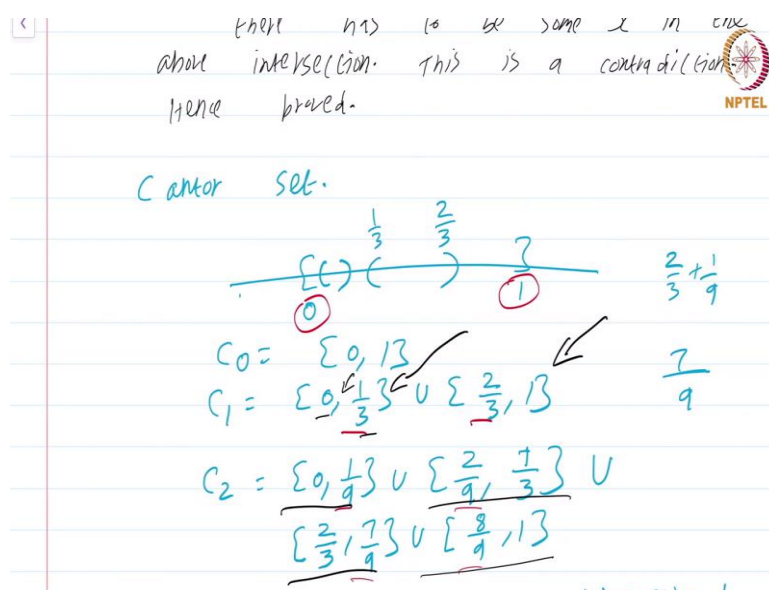 there has to be some x in the
above intersection. This is a contradiction.
NPTEL
Hence proved.
Cantor set.
1/3 2/3
[ ( ) ( ) ]
0 1
2/3 + 1/9
C0 = [0, 1]
7/9
C1 = [0, 1/3] ∪ [2/3, 1]
C2 = [0, 1/9] ∪ [2/9, 1/3] ∪
[2/3, 7/9] ∪ [8/9, 1]